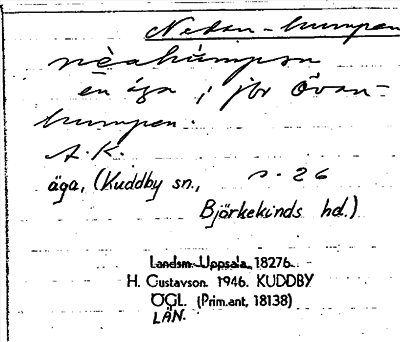 Nedan-humpen
nèahùmpen
en äga; jfr Ovan-
humpen.
A.K.
äga, (Kuddby sn., s. 26
Björkekinds hd.)
Landsm. Uppsala 18276
H. Gustavson. 1946. KUDDBY
ÖGL. (Prim.ant. 18138)
LÄN.